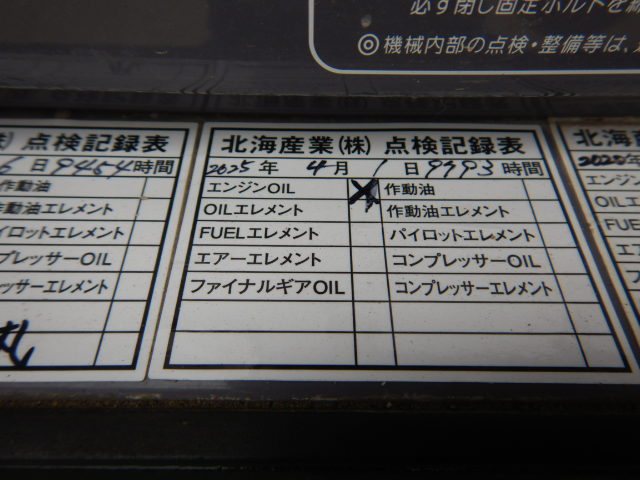 必ず閉じ固定ボルトを
◎機械内部の点検・整備等は、
点検記録表
6日9454時間
作動油
作動油エレメント
パイロットエレメント
コンプレッサーOIL
コンプレッサーエレメント
北海産業(株) 点検記録表
2025年 4月 1日 9993時間
エンジンOIL 作動油
OILエレメント 作動油エレメント
FUELエレメント パイロットエレメント
エアーエレメント コンプレッサーOIL
ファイナルギアOIL コンプレッサーエレメント
北海
2025
エンジン
OILエ
FUEL
エア
ファ